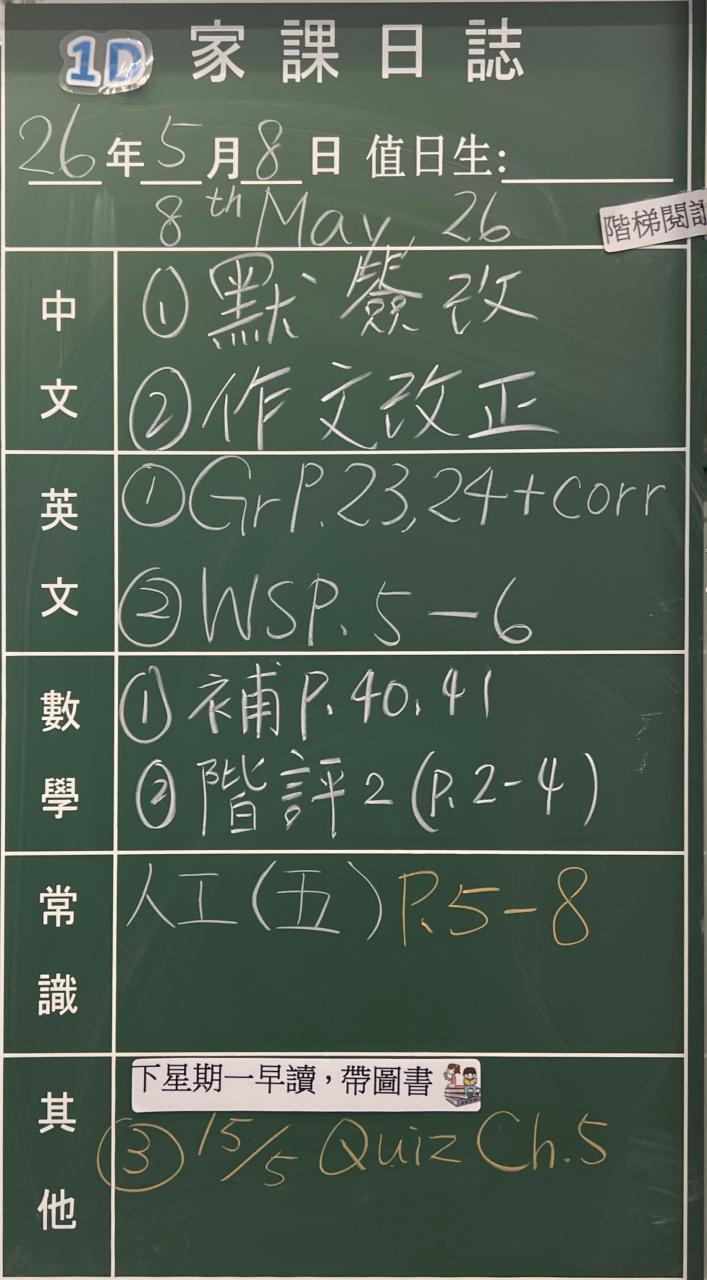 1D 家課日誌
26年5月8日 值日生:
8th May, 26
階梯閱
中文
① 默簽改
② 作文改正
英文
① Gr P.23,24+corr
② WS P.5-6
數學
① 補 P.40,41
② 階評2 (P.2-4)
常識
人工(五) P.5-8
其他
下星期一早讀，帶圖書
③ 15/5 Quiz Ch.5